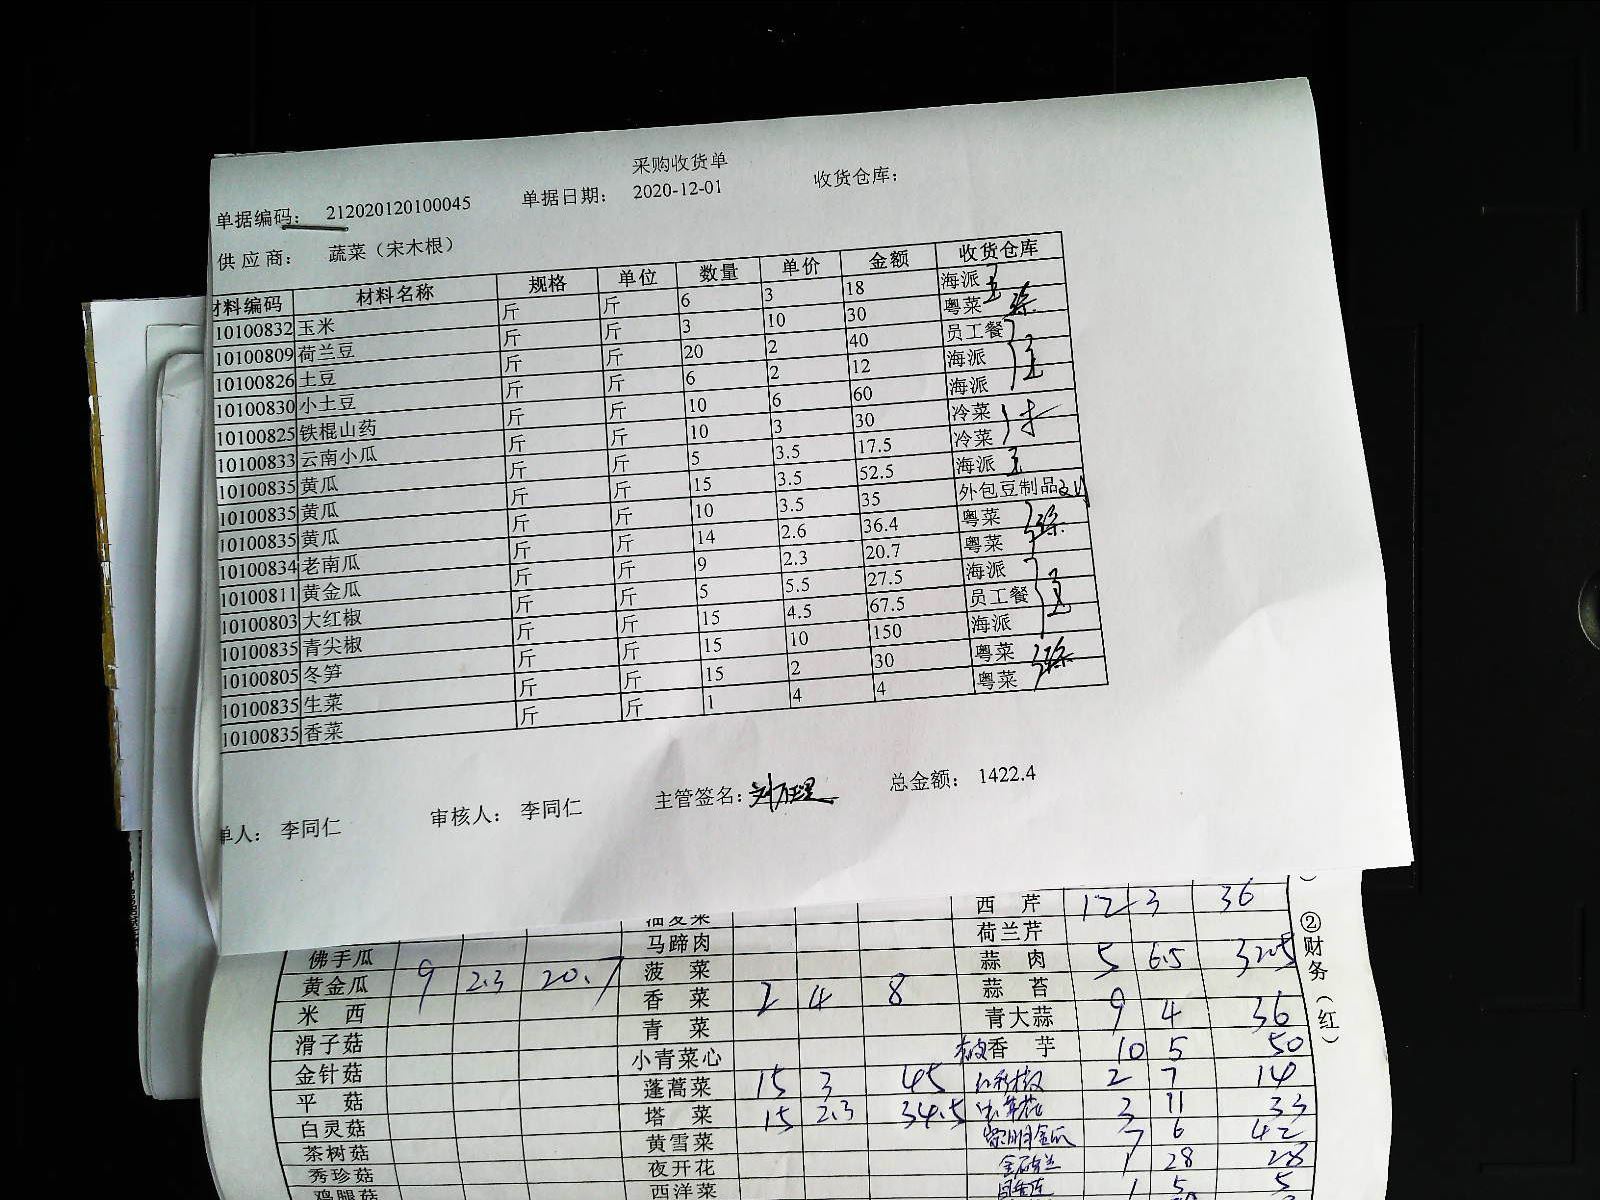 采购收货单
单据编码： 212020120100045 单据日期： 2020-12-01 收货仓库：
供应商： 蔬菜（宋木根）
材料编码 材料名称 规格 单位 数量 单价 金额 收货仓库
10100832 玉米 斤 斤 6 3 18 海派
10100809 荷兰豆 斤 斤 3 10 30 粤菜
10100826 土豆 斤 斤 20 2 40 员工餐
10100830 小土豆 斤 斤 6 2 12 海派
10100825 铁棍山药 斤 斤 10 6 60 海派
10100833 云南小瓜 斤 斤 10 3 30 冷菜
10100835 黄瓜 斤 斤 5 3.5 17.5 冷菜
10100835 黄瓜 斤 斤 15 3.5 52.5 海派
10100835 黄瓜 斤 斤 10 3.5 35 外包豆制品
10100834 老南瓜 斤 斤 14 2.6 36.4 粤菜
10100811 黄金瓜 斤 斤 9 2.3 20.7 粤菜
10100803 大红椒 斤 斤 5 5.5 27.5 海派
10100835 青尖椒 斤 斤 15 4.5 67.5 员工餐
10100805 冬笋 斤 斤 15 10 150 海派
10100835 生菜 斤 斤 15 2 30 粤菜
10100835 香菜 斤 斤 1 4 4 粤菜
单人： 李同仁 审核人： 李同仁 主管签名： 总金额： 1422.4
油麦菜 西芹 12 3 36
马蹄肉 荷兰芹
佛手瓜 菠菜 蒜肉 5 6.5 32.5
黄金瓜 9 2.3 20.7 香菜 2 4 8 蒜苔 9 4 36
米西 青菜 青大蒜
滑子菇 小青菜心 香芋 10 5 50
金针菇 蓬蒿菜 15 3 45 2 7 14
平菇 塔菜 15 2.3 34.5 3 11 33
白灵菇 黄雪菜 7 6 42
茶树菇 夜开花 1 28 28
秀珍菇 西洋菜 1 5 5
鸡腿菇
②财务（红）